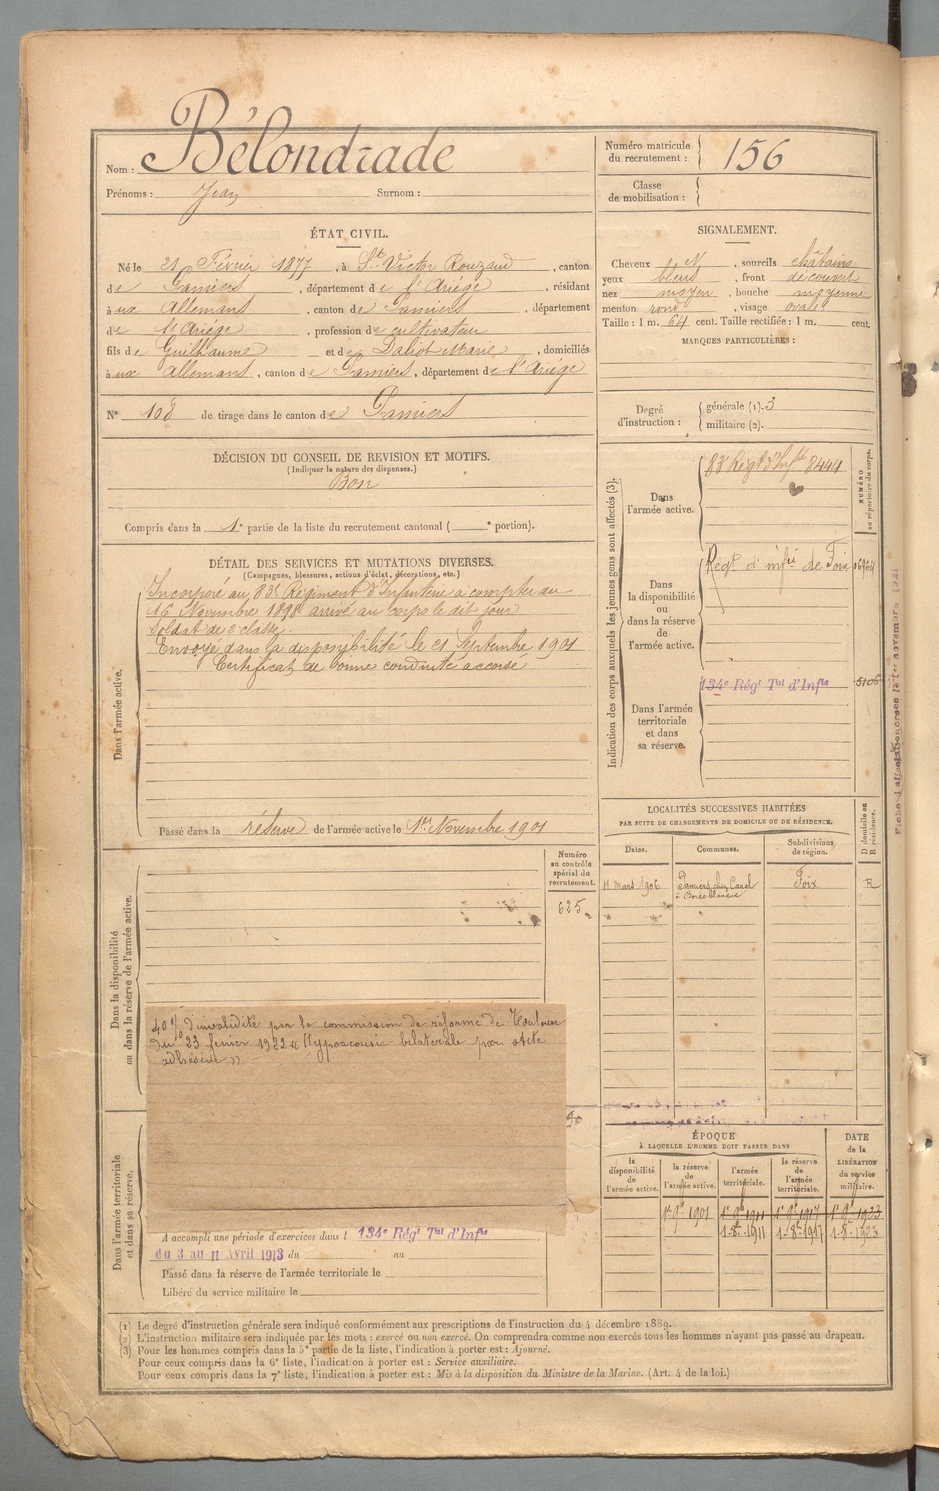 Nom : Bélondrade
Prénoms : Jean Surnom :
Numéro matricule du recrutement : 156
Classe de mobilisation :
ÉTAT CIVIL.
Né le 21 Février 1877, à St Victor Rouzaud, canton
de Pamiers, département de l'Ariège, résidant
à ux Allemans, canton de Pamiers, département
de l'Ariège, profession de cultivateur
fils de Guilhaume et de Daliot Marie, domiciliés
à ux Allemans, canton de Pamiers, département de l'Ariège
N° 108 de tirage dans le canton de Pamiers
SIGNALEMENT.
Cheveux N, sourcils châtains
yeux bleus, front découvert
nez moyen, bouche moyenne
menton rond, visage ovale
Taille : 1 m. 64 cent. Taille rectifiée : 1 m. cent.
MARQUES PARTICULIÈRES :
Degré d'instruction : générale (1). 3
militaire (2).
DÉCISION DU CONSEIL DE REVISION ET MOTIFS.
(Indiquer la nature des dispenses.)
Bon
Compris dans la 1e partie de la liste du recrutement cantonal ( e portion).
DÉTAIL DES SERVICES ET MUTATIONS DIVERSES.
(Campagnes, blessures, actions d'éclat, décorations, etc.)
Dans l'armée active.
Incorporé au 83e Régiment d'Infanterie à compter du
16 Novembre 1898 arrivé au corps le dit jour
Soldat de 2e classe.
Envoyé dans la disponibilité le 21 Septembre 1901
Certificat de bonne conduite accordé
Passé dans la réserve de l'armée active le 1er Novembre 1901
Indication des corps auxquels les jeunes gens sont affectés (3).
NUMÉRO au répertoire du corps.
Dans l'armée active.
83e Régt d'Infie 8444
Dans la disponibilité ou dans la réserve de l'armée active.
Régt d'infie de Foix
Dans l'armée territoriale et dans sa réserve.
134e Régt Tal d'Infie 5106
LOCALITÉS SUCCESSIVES HABITÉES
PAR SUITE DE CHANGEMENTS DE DOMICILE OU DE RÉSIDENCE.
D domicile ou R résidence.
Dates. Communes. Subdivisions de région.
11 mars 1906 Pamiers chez Carol Foix R
Dans la disponibilité ou dans la réserve de l'armée active.
Numéro au contrôle spécial du recrutement.
625
40% d'invalidité par la commission de réforme de Toulouse
du 23 février 1932 « Hypoacousie bilatérale par otite
adhésive »
Dans l'armée territoriale et dans sa réserve.
A accompli une période d'exercices dans l 134e Régt Tal d'Infie
du 3 au 11 Avril 1913 du au
Passé dans la réserve de l'armée territoriale le
Libéré du service militaire le
ÉPOQUE
À LAQUELLE L'HOMME DOIT PASSER DANS
DATE de la LIBÉRATION du service militaire.
la disponibilité de l'armée active. la réserve de l'armée active. l'armée territoriale. la réserve de l'armée territoriale.
1er 9bre 1901 1er 9bre 1911 1er 9bre 1917 1er 9bre 1923
1-8bre-1911 1-8bre-1917 1-8bre-1923
(1) Le degré d'instruction générale sera indiqué conformément aux prescriptions de l'instruction du 4 décembre 1889.
(2) L'instruction militaire sera indiquée par les mots : exercé ou non exercé. On comprendra comme non exercés tous les hommes n'ayant pas passé au drapeau.
(3) Pour les hommes compris dans la 5e partie de la liste, l'indication à porter est : Ajourné.
Pour ceux compris dans la 6e liste, l'indication à porter est : Service auxiliaire.
Pour ceux compris dans la 7e liste, l'indication à porter est : Mis à la disposition du Ministre de la Marine. (Art. 4 de la loi.)